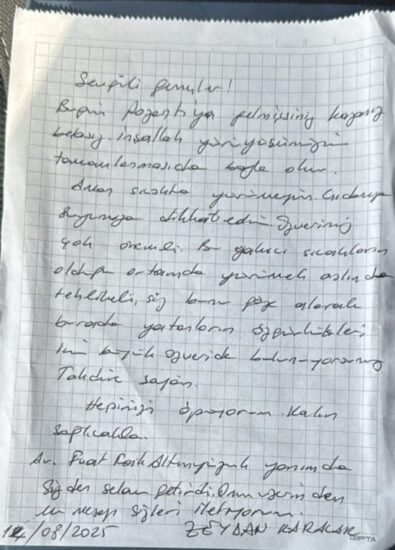 Sevgili gençler!
Bugün Pozantı'ya gelmişsiniz kazasız
belasız. İnşallah yürüyüşünüzün
tamamlanması da böyle olur.
Aman sıcakta yürümeyin. Gıdanıza
Suyunuza dikkat edin Özveriniz
çok önemli. Bu yakıcı sıcakların
olduğu ortamda yürümek aslında
tehlikeli, siz bunu göze alarak
burada yatanların özgürlükleri
için büyük özveride bulunuyorsunuz
Takdire şayan.
Hepinizi öpüyorum. Kalın
sağlıcakla.
Av. Fuat yanımda
Sizden selam getirdi. Onun üzerinden
bu mesajı sizlere iletiyorum.
14/08/2025 ZEYDAN KARALAR
GIPTA